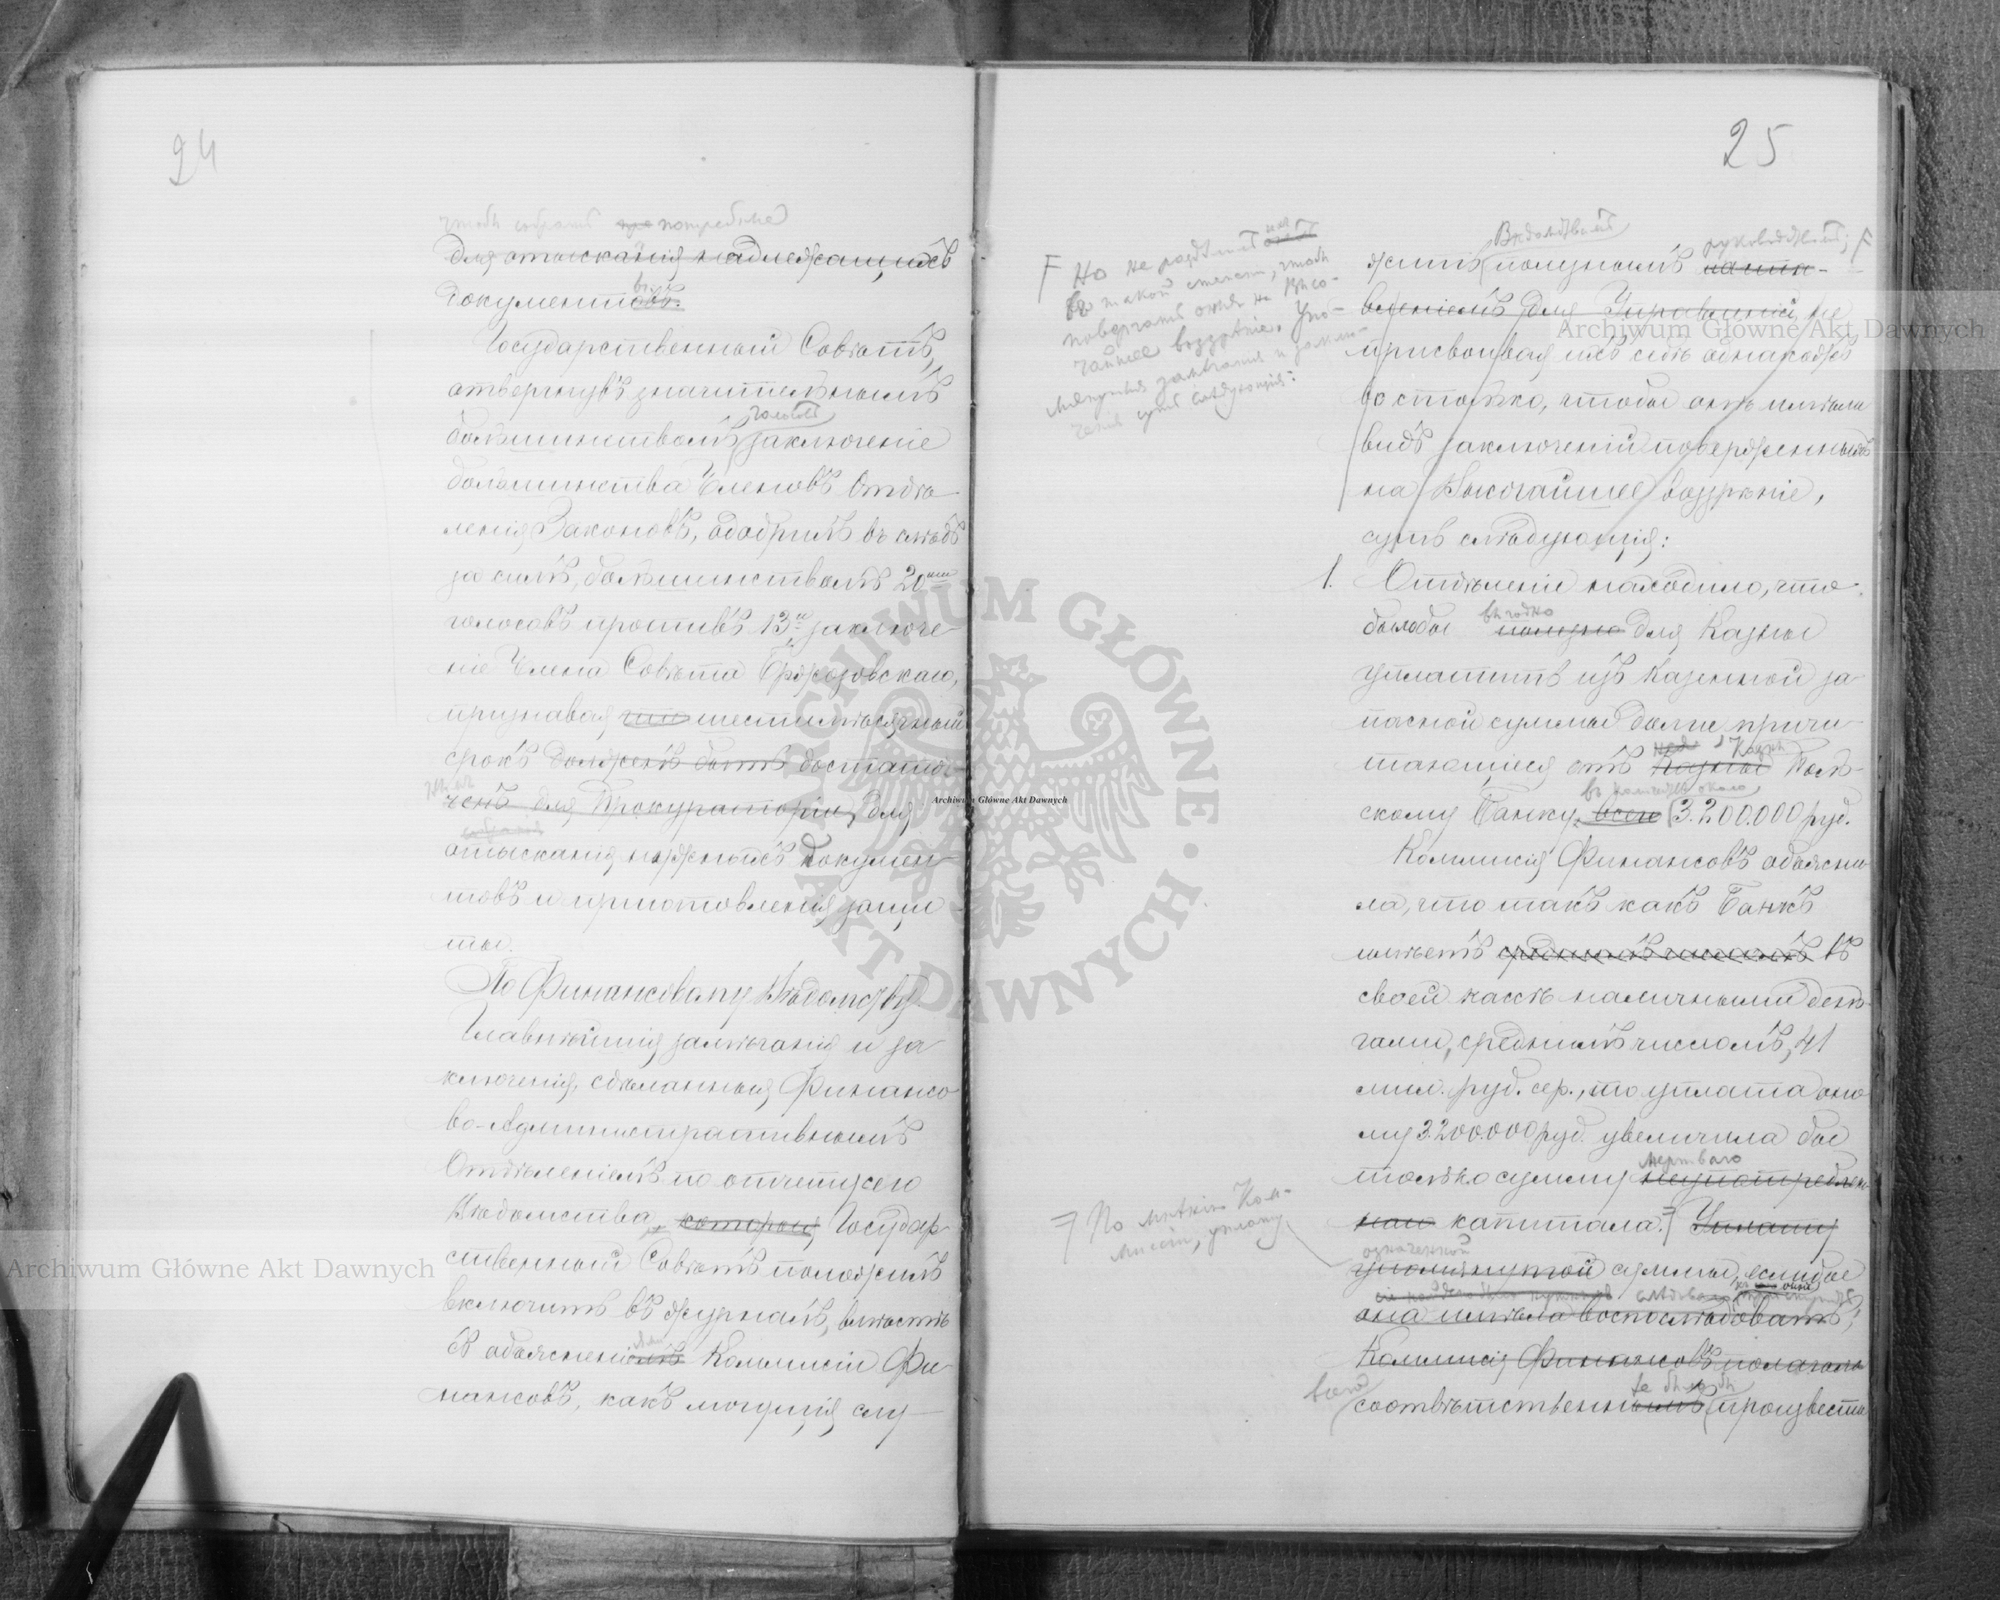 24
чтобы собрать потребные
для отысканія надлежащихъ
документовъ.
Государственный Совѣтъ,
отвергнувъ значительнымъ
большинствомъ голосовъ заключеніе
большинства Членовъ Отдѣ-
ленія Законовъ, одобрилъ въ слѣдъ
за симъ, большинствомъ 20
голосовъ противъ 13 заключе-
ніе Члена Совѣта
признавая что шестимѣсячный
срокъ долженъ быть достато-
ченъ для Прокураторіи, для
отысканія нужныхъ докумен-
товъ и приготовленія защи-
ты.
По Финансовому Вѣдомству
Главнѣйшія замѣчанія и за
ключенія, сдѣланныя Финансо
во-Административнымъ
Отдѣленіемъ по отчету сего
Вѣдомства, которыя Государ-
ственный Совѣтъ положилъ
включить въ журналъ, вмѣстѣ
съ объясненіемъ Коммисіи Фи-
нансовъ, какъ могущія слу-
25
F Но не раздѣляетъ
въ такой степени, чтобы
повергать оныя на Высо-
чайшее воззрѣніе. Упо-
мянутыя замѣчанія и заклю-
ченія суть слѣдующія:
Вѣдомству руководствомъ; F
жить полезнымъ настав-
вленіемъ для Управленій, не
присвоивая имъ себѣ однакожъ
во столько, чтобы онѣ имѣли
видъ заключеній поверженныхъ
на Высочайшее воззрѣніе,
суть слѣдующія:
1. Отдѣленіе находило, что
выгодно
было бы полезно для Казны
уплатить изъ Казенной за
пасной суммы долги причи
тающіеся отъ Казны Поль-
скому Банку, всего 3.200.000 руб.
Коммисія Финансовъ объясни
ла, что такъ какъ Банкъ
имѣетъ среднимъ числомъ въ
своей кассѣ наличными день-
гами, среднимъ числомъ, 41
мил. руб. сер., то уплата оно
му 3.200.000 руб. увеличила бы
мертваго
только сумму неупотреблен
наго капитала. Уплату
По мнѣнію Ком-
мисіи, уплату
означенной
упомянутой суммы, еслибы
она имѣла воспослѣдовать,
Коммисія Финансовъ полагала
соотвѣтственнымъ произвести
Archiwum Główne Akt Dawnych
Archiwum Główne Akt Dawnych
Archiwum Główne Akt Dawnych
ARCHIWUM GŁÓWNE · AKT DAWNYCH ·